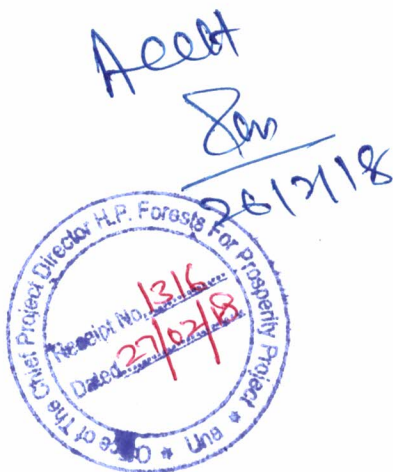 Acctt
26/2/18
Office of The Chief Project Director H.P. Forests For Prosperity Project * Una *
Receipt No. 1316
Dated 27/02/18